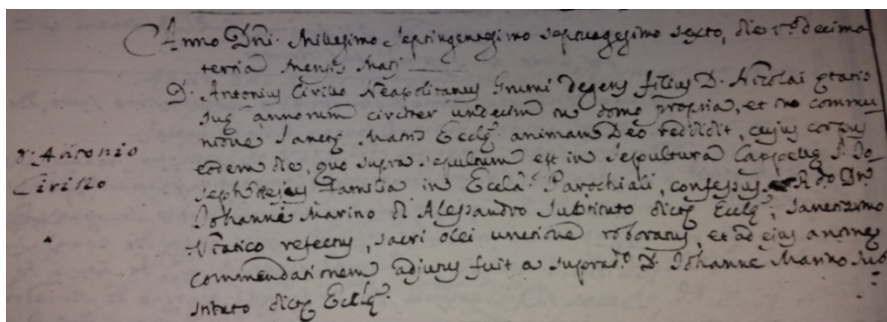 Anno Dñi Millesimo Septingentesimo Septuagesimo Sexto, die vº decima
tertia Mensis Maij
D. Antonius Cirillo Neapolitanus Grumi degens filius D. Nicolai ętatis
suę annorum circiter undecim in domo propria, et in commu-
nione Sanctę Matris Ecclę animam Deo reddidit, cujus corpus
eodem die, quo supra sepultum est in sepultura Cappellę S. Jo-
seph ejus Familia in Eccla Parochiali, confessus R.do Dno
Johanne Marino di Alessandro Substituto dictę Ecclę, Sanctissimo
Viatico refectus, sacri olei unctione roboratus, et ad ejus animę
commendationem adjutus fuit a suprad.º D. Johanne Marino Sub
stituto dictę Ecclę
D. Antonio
Cirillo